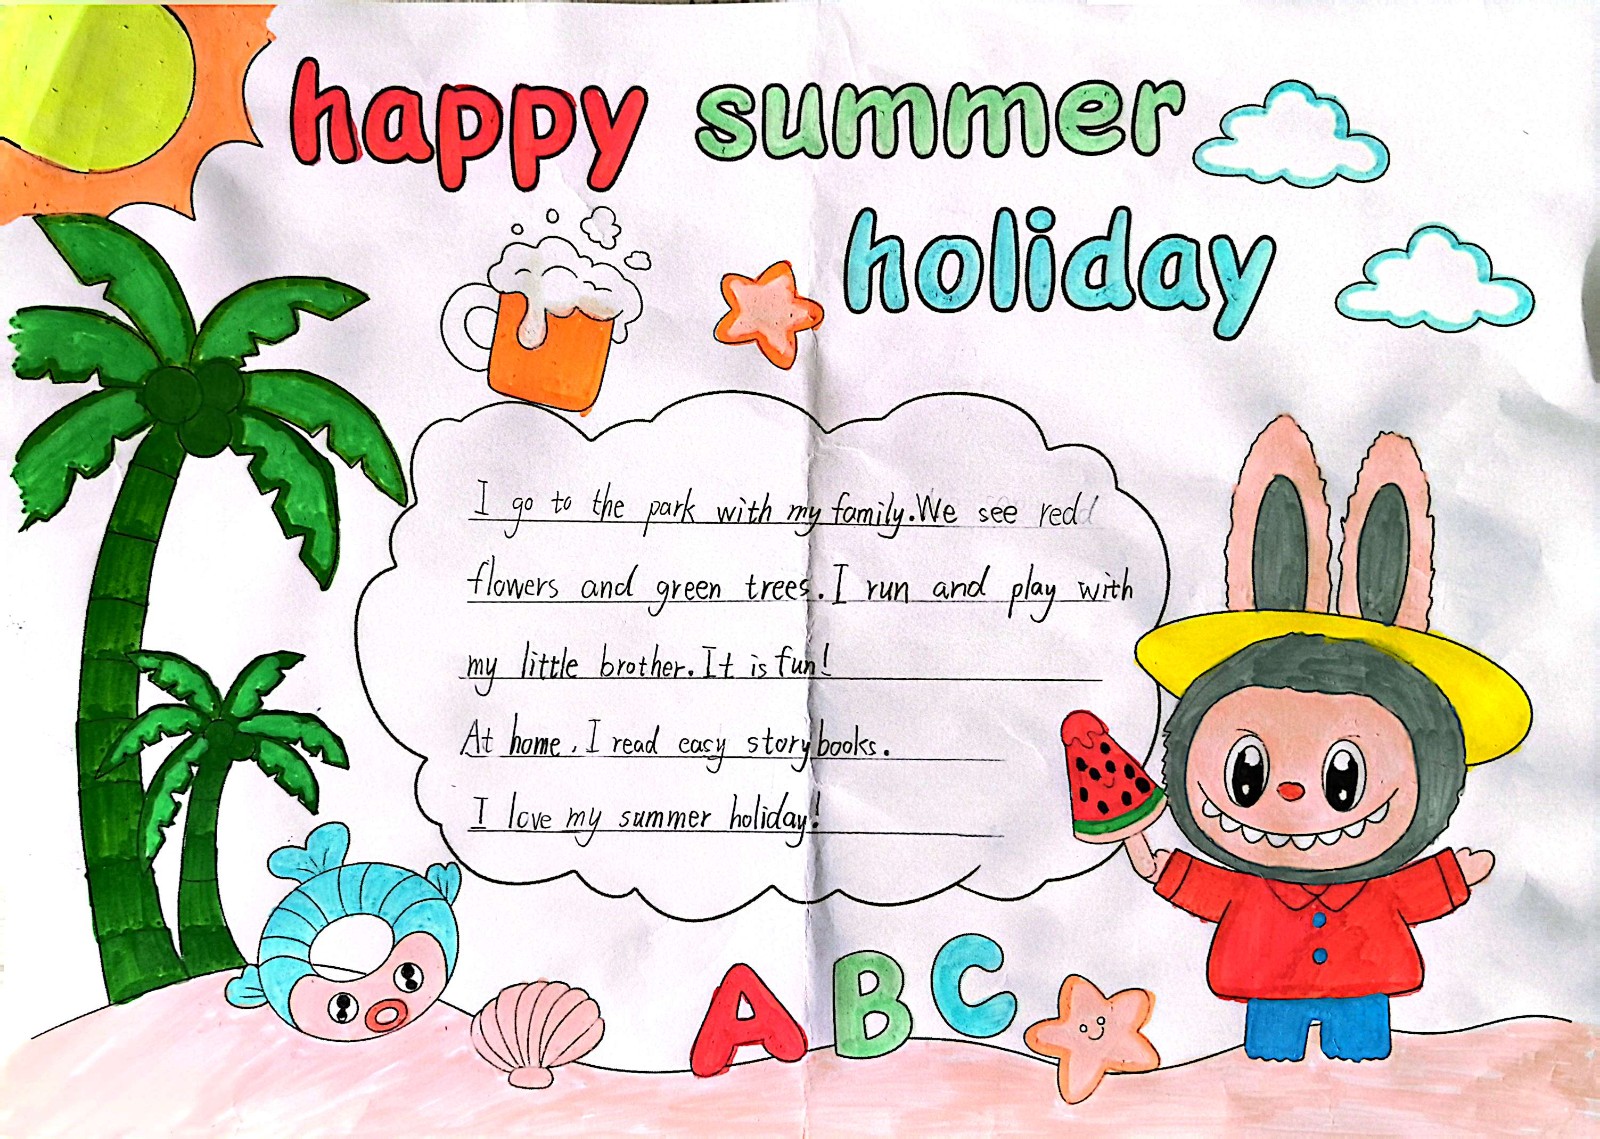 happy summer
holiday
I go to the park with my family. We see red
flowers and green trees. I run and play with
my little brother. It is fun!
At home, I read easy story books.
I love my summer holiday!
ABC